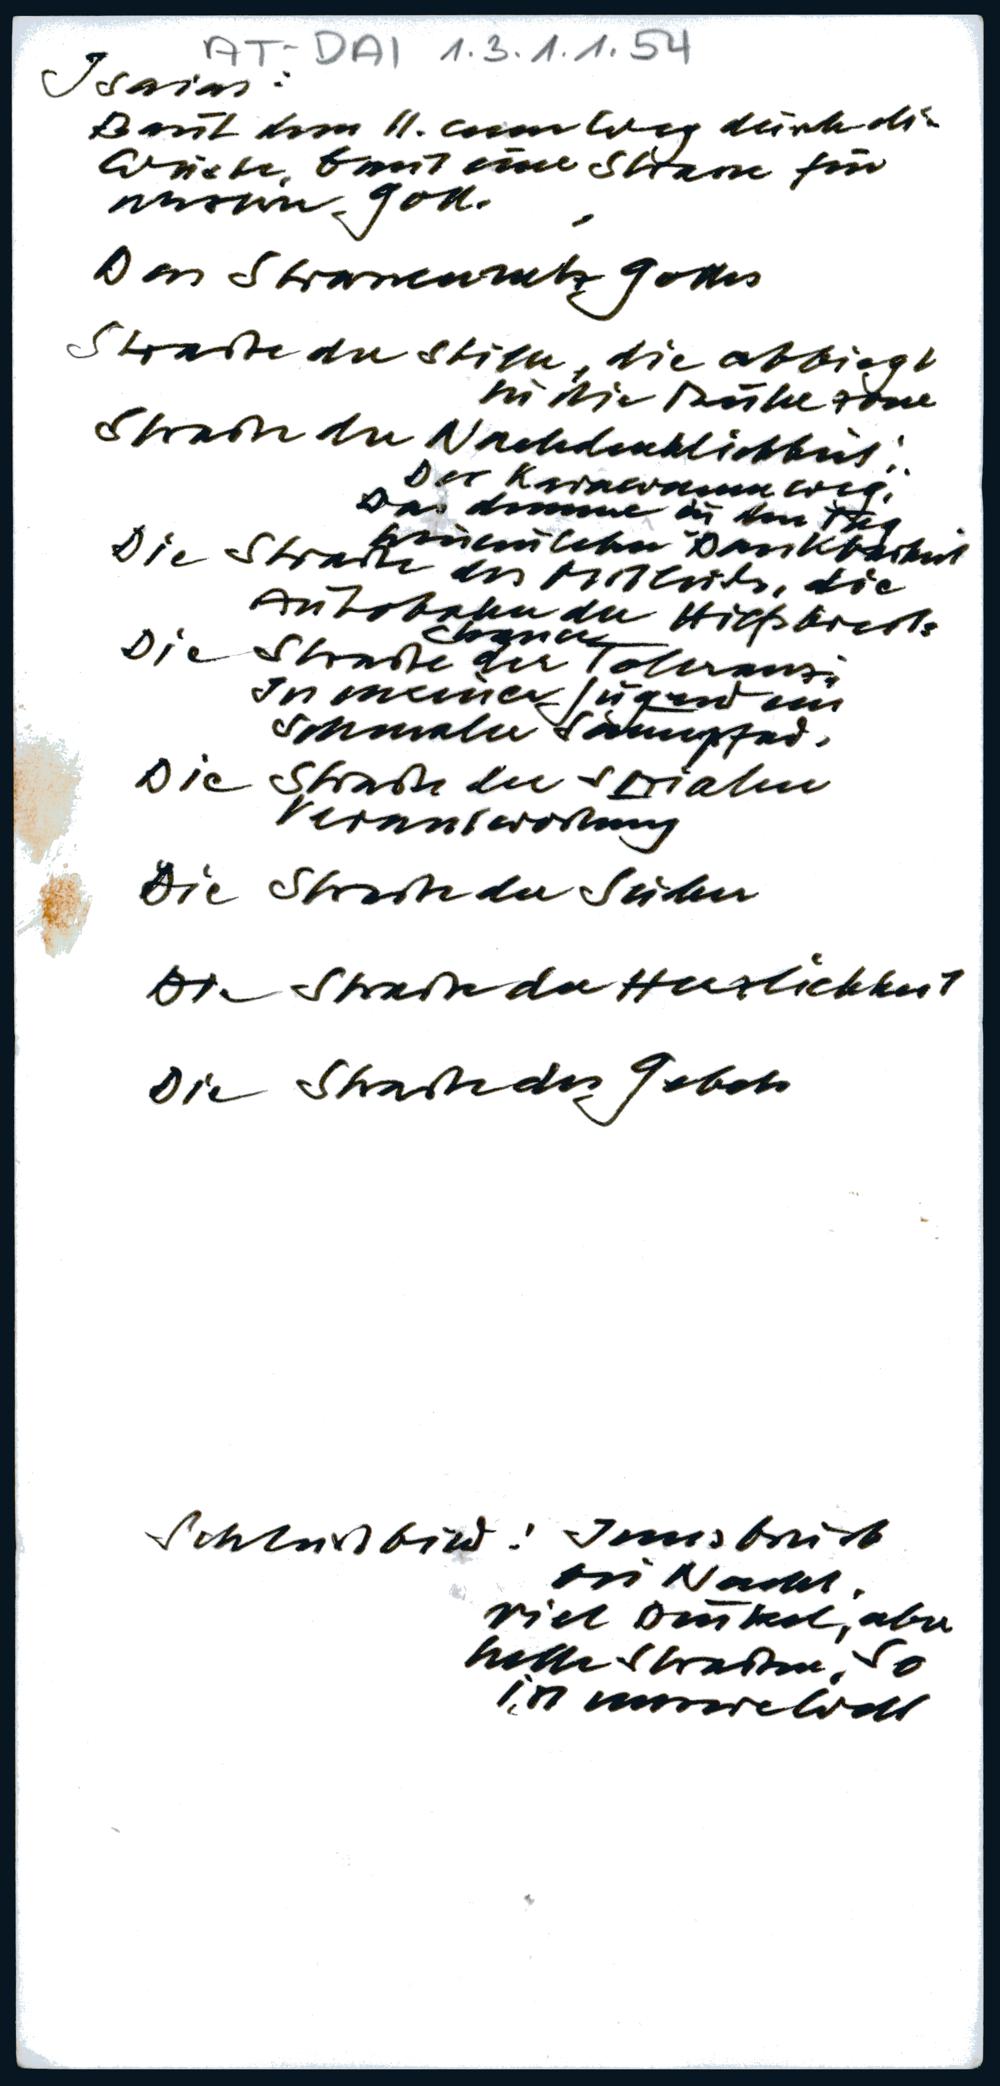 AT-DAI 1.3.1.1.54
Isaias:
Baut dem H. einen Weg durch die
Wüste, baut eine Strasse für
unseren Gott.
Das Strassennetz Gottes
Straße der Stille, die abbiegt
in die Ruhezone
Straße der Nachdenklichkeit:
Der Karawanenweg.
Das in den Tag
Dankbarkeit
Die Straße des Mitleids, die
Autobahn der Hilfsbereits.
Chance
Die Straße der Toleranz:
In meiner Jugend ein
schmaler Saumpfad.
Die Straße der sozialen
Verantwortung
Die Straße der Sucher
Die Straße der Herzlichkeit
Die Straße des Gebets
Schlussbild: Innsbruck
bei Nacht.
viel Dunkel, aber
helle Straßen. So
ist unsere Welt